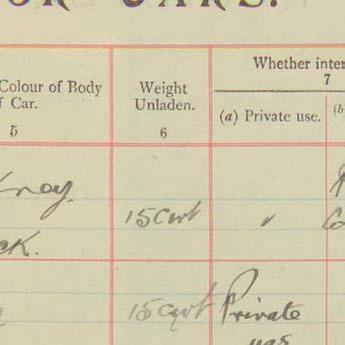 OR CARS.
Colour of Body
f Car.
5
Weight
Unladen.
6
Whether inter
7
(a) Private use.
(b
15 cwt
✓
Co
ck.
15 cwt
Private